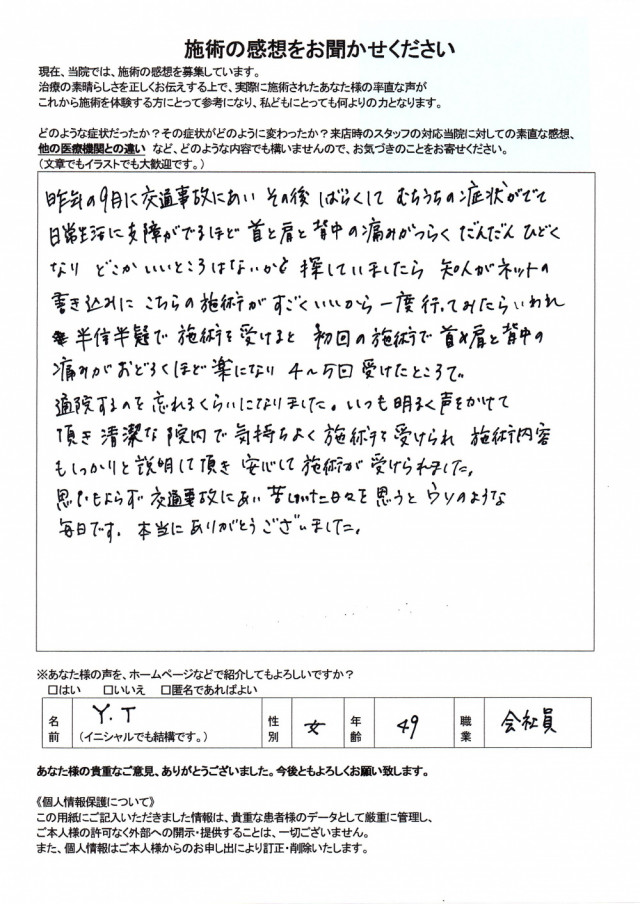 施術の感想をお聞かせください
現在、当院では、施術の感想を募集しています。
治療の素晴らしさを正しくお伝えする上で、実際に施術されたあなた様の率直な声が
これから施術を体験する方にとって参考になり、私どもにとっても何よりの力となります。
どのような症状だったか？その症状がどのように変わったか？来店時のスタッフの対応当院に対しての素直な感想、
他の医療機関との違い など、どのような内容でも構いませんので、お気づきのことをお寄せください。
（文章でもイラストでも大歓迎です。）
昨年の9月に交通事故にあい その後 ばらくして むちうちの症状がでて
日常生活に支障がでるほど 首と肩と背中の痛みがつらく だんだん ひどく
なり どこか いいところはないかと 探していましたら 知人がネットの
書き込みに こちらの施術が すごくいいから 一度 行ってみたらいわれ
半信半疑で 施術を受けると 初回の施術で 首と肩と背中の
痛みがおどろくほど楽になり 4〜5回 受けたところで。
通院するのを 忘れるくらいになりました。いつも明るく声をかけて
頂き 清潔な院内で 気持ちよく 施術を受けられ 施術内容
もしっかりと説明して頂き 安心して 施術が受けられました。
思いもよらず 交通事故にあい 苦しかった日々を思うと ウソのような
毎日です。本当にありがとうございました。
※あなた様の声を、ホームページなどで紹介してもよろしいですか？
□はい □いいえ □匿名であればよい
名前 Y.T （イニシャルでも結構です。） 性別 女 年齢 49 職業 会社員
あなた様の貴重なご意見、ありがとうございました。今後ともよろしくお願い致します。
《個人情報保護について》
この用紙にご記入いただきました情報は、貴重な患者様のデータとして厳重に管理し、
ご本人様の許可なく外部への開示・提供することは、一切ございません。
また、個人情報はご本人様からのお申し出により訂正・削除いたします。